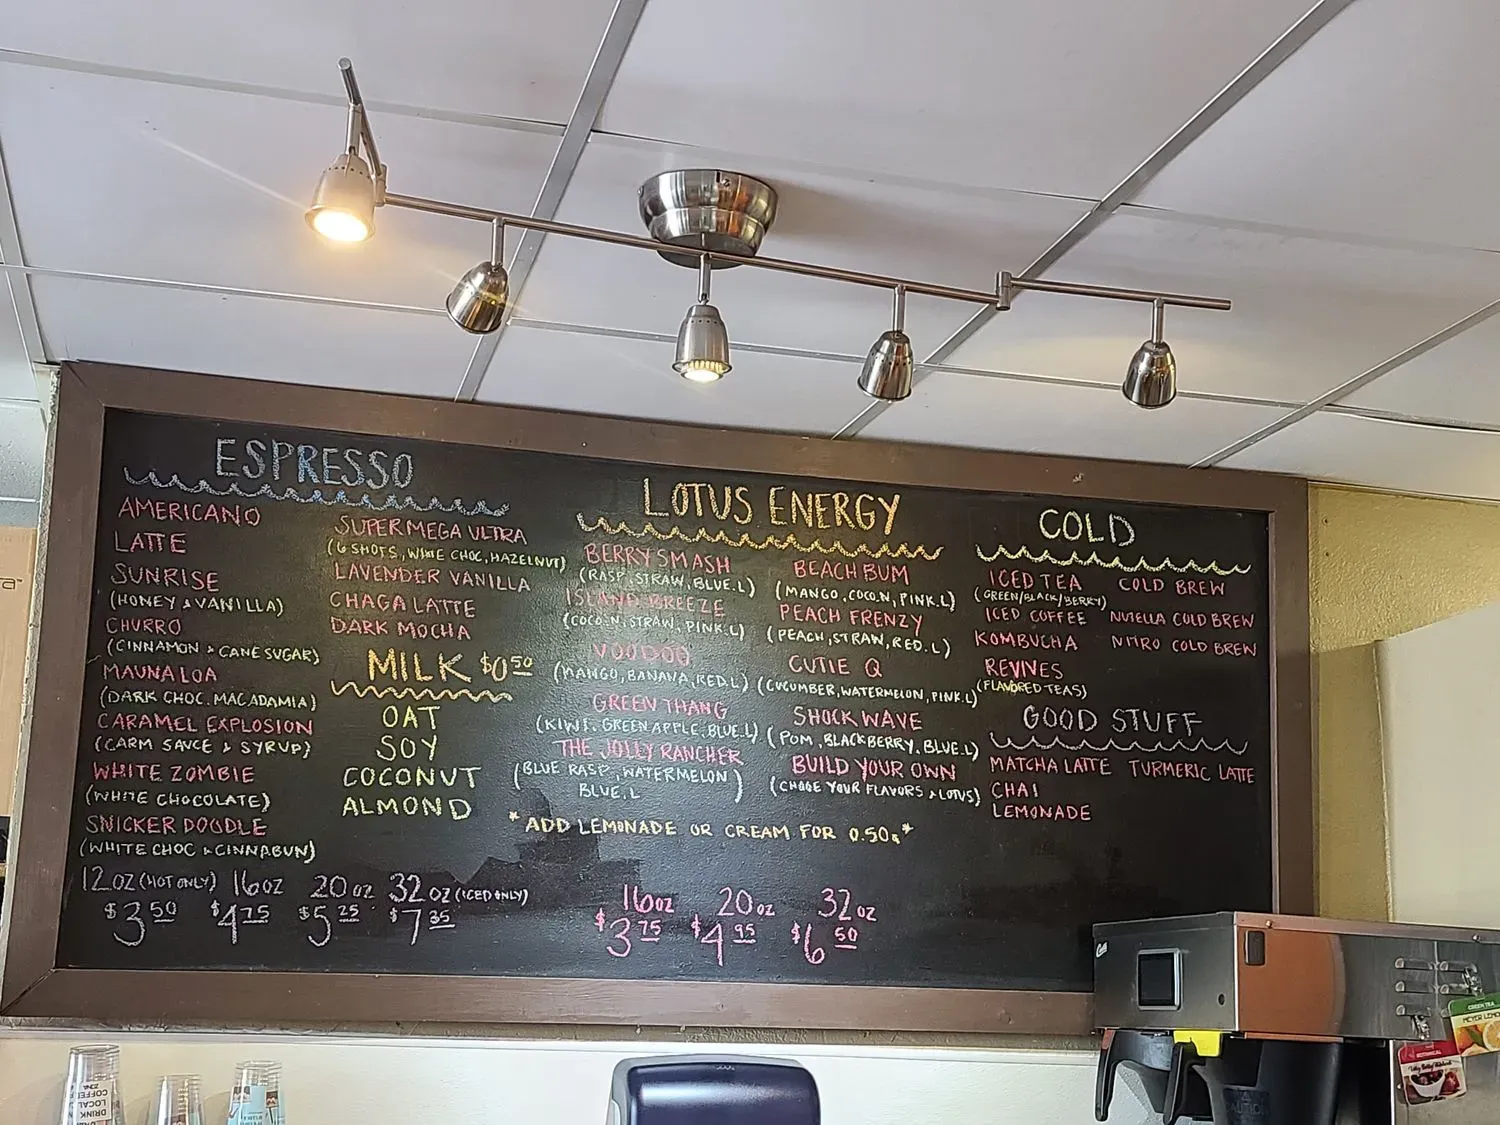 ESPRESSO
AMERICANO
LATTE
SUNRISE
(HONEY & VANILLA)
CHURRO
(CINNAMON & CANE SUGAR)
MAUNA LOA
(DARK CHOC. MACADAMIA)
CARAMEL EXPLOSION
(CARM SAUCE & SYRUP)
WHITE ZOMBIE
(WHITE CHOCOLATE)
SNICKER DOODLE
(WHITE CHOC & CINNABUN)
SUPER MEGA ULTRA
(6 SHOTS, WHITE CHOC, HAZELNUT)
LAVENDER VANILLA
CHAGA LATTE
DARK MOCHA
MILK $0.50
OAT
SOY
COCONUT
ALMOND
12oz (HOT ONLY) 16oz 20oz 32oz (ICED ONLY)
$3.50 $4.75 $5.25 $7.35
LOTUS ENERGY
BERRY SMASH
(RASP, STRAW, BLUE.L)
ISLAND BREEZE
(COCO.N, STRAW, PINK.L)
VOODOO
(MANGO, BANANA, RED.L)
GREEN THANG
(KIWI, GREEN APPLE, BLUE.L)
THE JOLLY RANCHER
(BLUE RASP, WATERMELON
BLUE.L)
BEACH BUM
(MANGO, COCO.N, PINK.L)
PEACH FRENZY
(PEACH, STRAW, RED.L)
CUTIE Q
(CUCUMBER, WATERMELON, PINK.L)
SHOCK WAVE
(POM, BLACKBERRY, BLUE.L)
BUILD YOUR OWN
(CHOOSE YOUR FLAVORS & LOTUS)
*ADD LEMONADE OR CREAM FOR 0.50¢*
16oz 20oz 32oz
$3.75 $4.95 $6.50
COLD
ICED TEA
(GREEN/BLACK/BERRY)
ICED COFFEE
KOMBUCHA
REVIVES
(FLAVORED TEAS)
COLD BREW
NUTELLA COLD BREW
NITRO COLD BREW
GOOD STUFF
MATCHA LATTE TURMERIC LATTE
CHAI
LEMONADE
DRINK
LOCAL
COFFEE
GREEN TEA
MEYER LEMON
BOTANICAL
CAUTION